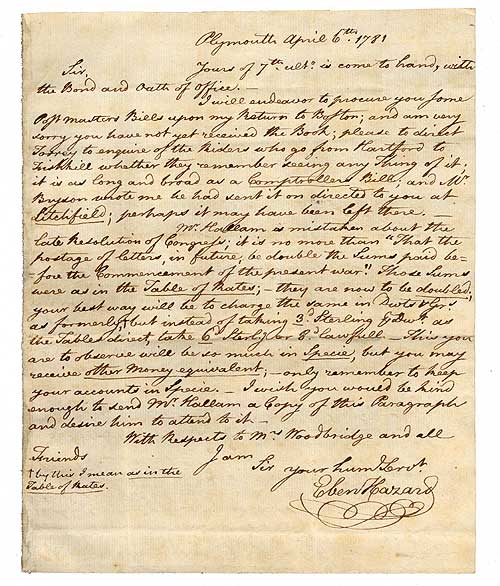 Plymouth April 6th. 1781
Sir,
Yours of 7th. ulto. is come to hand, with
the Bond and Oath of Office. —
I will endeavor to procure you some
Post masters Bills upon my Return to Boston; and am very
sorry you have not yet received the Book; please to direct
to enquire of the Riders who go from Hartford to
Fishkill whether they remember seeing any Thing of it;
it is as long and broad as a Comptrollers Bill; and Mr.
Bryson wrote me he had sent it on directed to you at
Litchfield; perhaps it may have been left there.
Mr. Hallam is mistaken about the
late Resolution of Congress; it is no more than "That the
postage of letters, in future, be double the Sums paid be-
fore the Commencement of the present war." Those Sums
were as in the Table of Rates; — they are now to be doubled;
your best way will be to charge the same in Dwts & Grs.
as formerly,† but instead of taking 3d. Sterling Dwt. as
the Tables direct, take 6d. Sterlg. or 8d. Lawfull — This you
are to observe will be so much in Specie, but you may
receive other Money equivalent; — only remember to keep
your accounts in Specie. — I wish you would be kind
enough to send Mr. Hallam a Copy of this Paragraph
and desire him to attend to it —
With Respects to Mrs. Woodbridge and all
Friends
I am
Sir your hum. Servt.
Eben Hazard
† by this I mean as in the
Table of Rates.